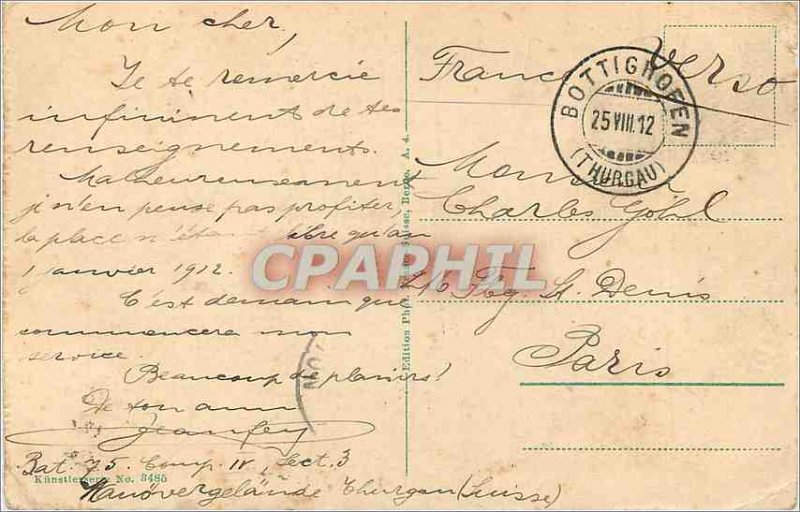 Mon cher,
Je te remercie
infiniment de tes
renseignements.
Malheureusement
je n'en peuse pas profiter,
la place n'étant libre qu'au
1 janvier 1912.
C'est demain que
commencera mon
service.
Beaucoup de plaisirs!
De ton ami
Bat. 75. Comp. IV, Sect. 3
Künstlerserie No. 3485
Manövergelände Thurgau (Suisse)
Edition Suisse, Berne. A. 4.
CPAPHIL
Franc verso
BOTTIGHOFEN
25 VIII. 12
(THURGAU)
Charles Göhl
Fbg. St. Denis
Paris